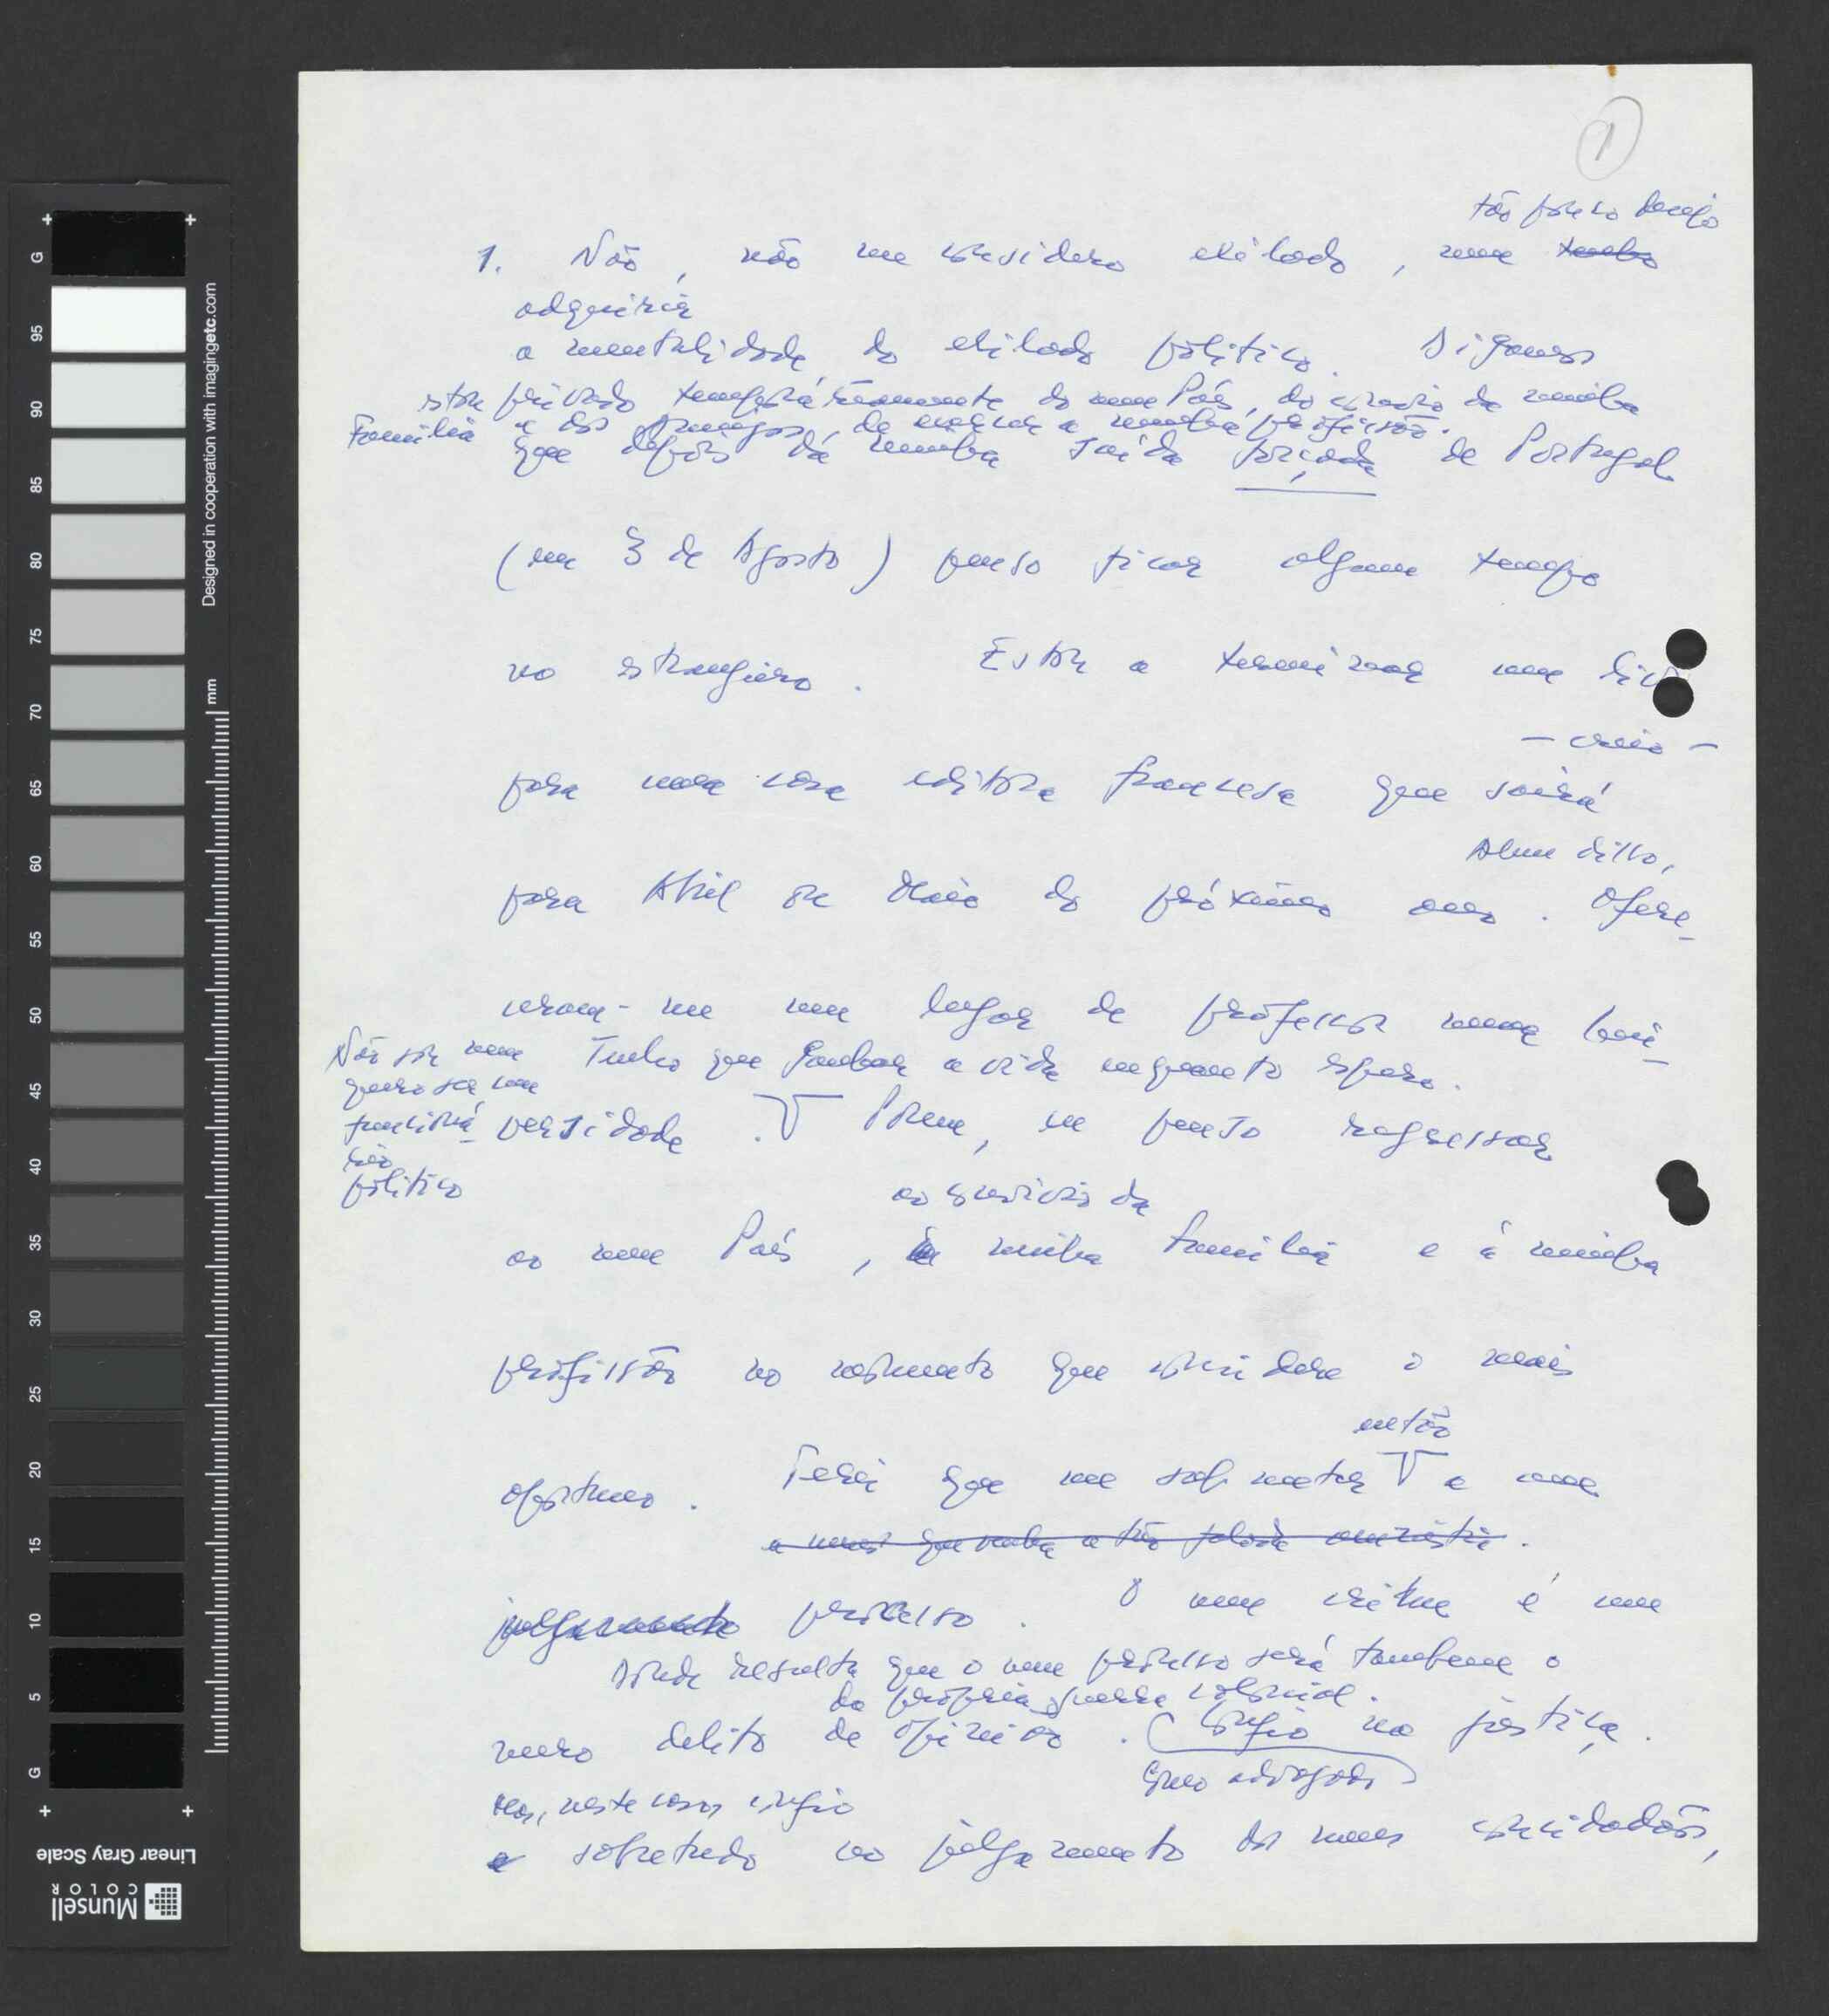 1
tão pouco desejo
1. Não, não me considero exilado, nem tenho
adquirir
a mentalidade do exilado político. Digamos
estou privado temporáriamente do meu País, do convívio da minha
Família e dos amigos, de exercer a minha profissão.
que depois da minha saída forçada de Portugal
(em 3 de Agosto) penso ficar algum tempo
no estrangeiro. Estou a terminar um livro
— creio —
para uma casa editora francesa que sairá
para Abril ou Maio do próximo ano. Ofere-
Alem disso,
ceram-me um lugar de professor numa Uni-
Não sou nem
quero ser um
funcioná-
rio
político
Tenho que ganhar a vida enquanto espero.
versidade. Porem, eu penso regressar
ao convívio da
ao meu País, à minha família e à minha
profissão no momento que considere o mais
então
oportuno. Terei que me submeter a um
a menos que venha a tão falada amnistia.
julgamento processo. O meu crime é um
Donde resulta que o meu processo será tambem o
da própria guerra colonial.
mero delito de opinião. Confio na justiça.
como advogado
Mas, neste caso, confio
e sobretudo no julgamento dos meus concidadãos,
G
95
90
85
80
75
70
65
60
55
50
45
40
35
30
25
20
15
10
5
G
mm
Designed in cooperation with imagingetc.com
Linear Gray Scale
Munsell
COLOR